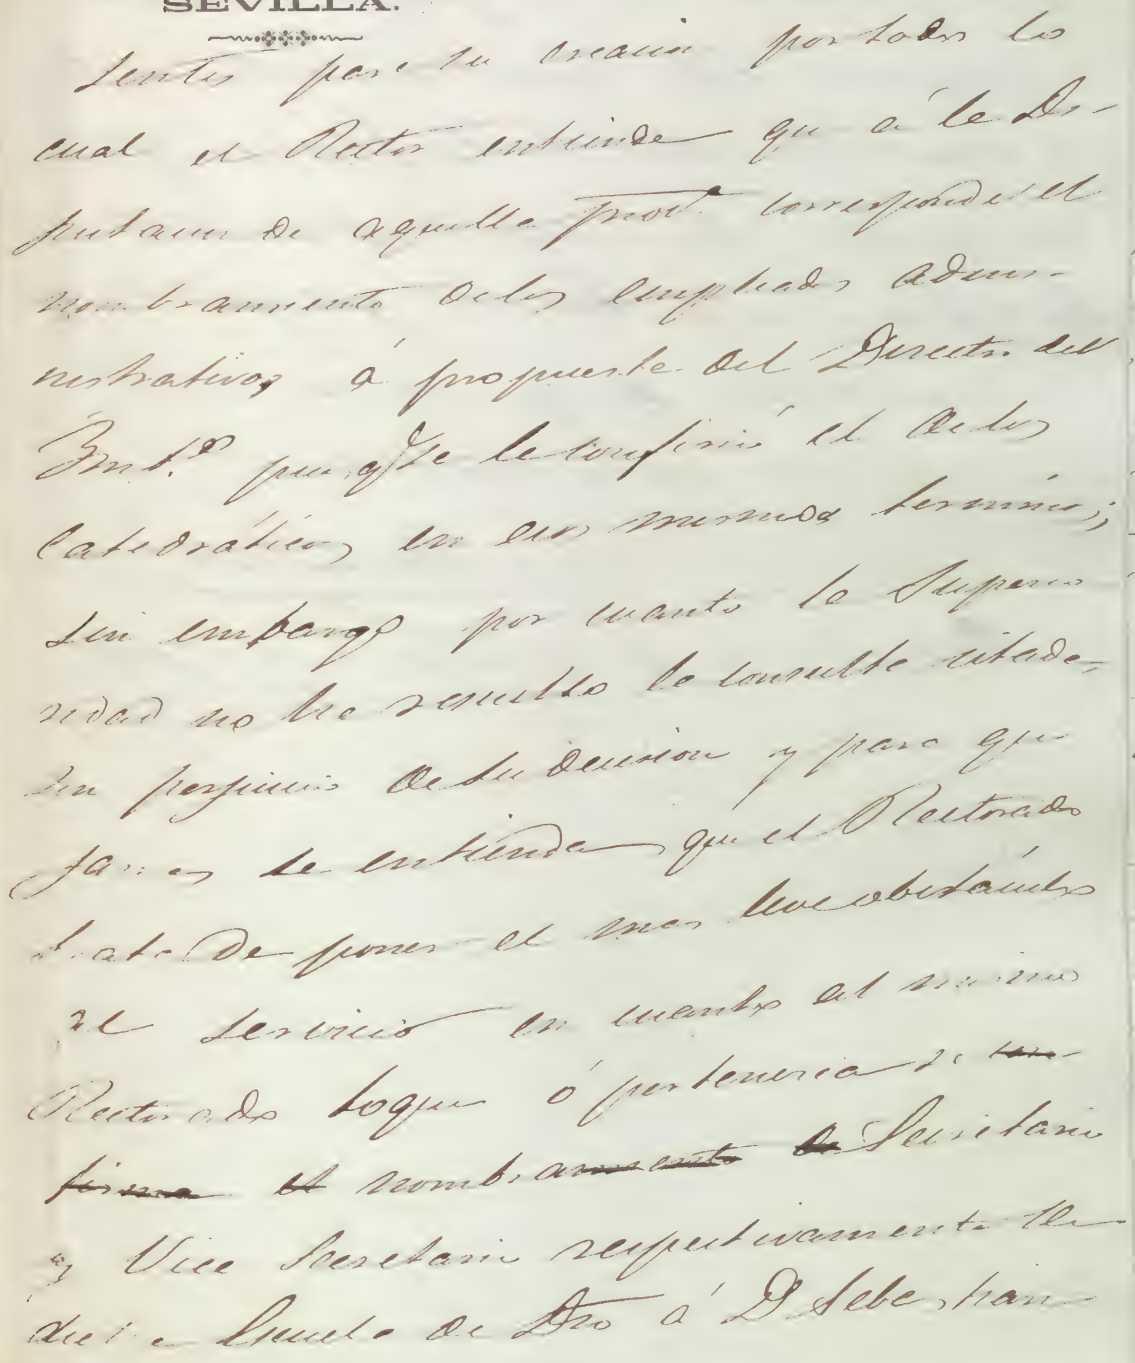 SEVILLA.
sentes para su creacion por todo lo
cual el Rector entiende que á la Di-
putacion de aquella provª corresponde el
nombramiento de los empleados admi-
nistrativos á propuesta del Director del
Instº pues qe se le confirió el de los
Catedráticos en los mismos terminos;
sin embargo por cuanto la Superio
ridad no ha resuelto la consulta citada
sin perjuicio de su decision y para que
jamas se entienda que el Rectorado
trata de poner el mas leve obstáculo
al servicio en cuanto al mismo
Rectorado toque ó pertenezca se con-
firma el nombramiento de Secretario
y Vice Secretario respectivamente de
dicha Escuela de Dro á D Sebastian